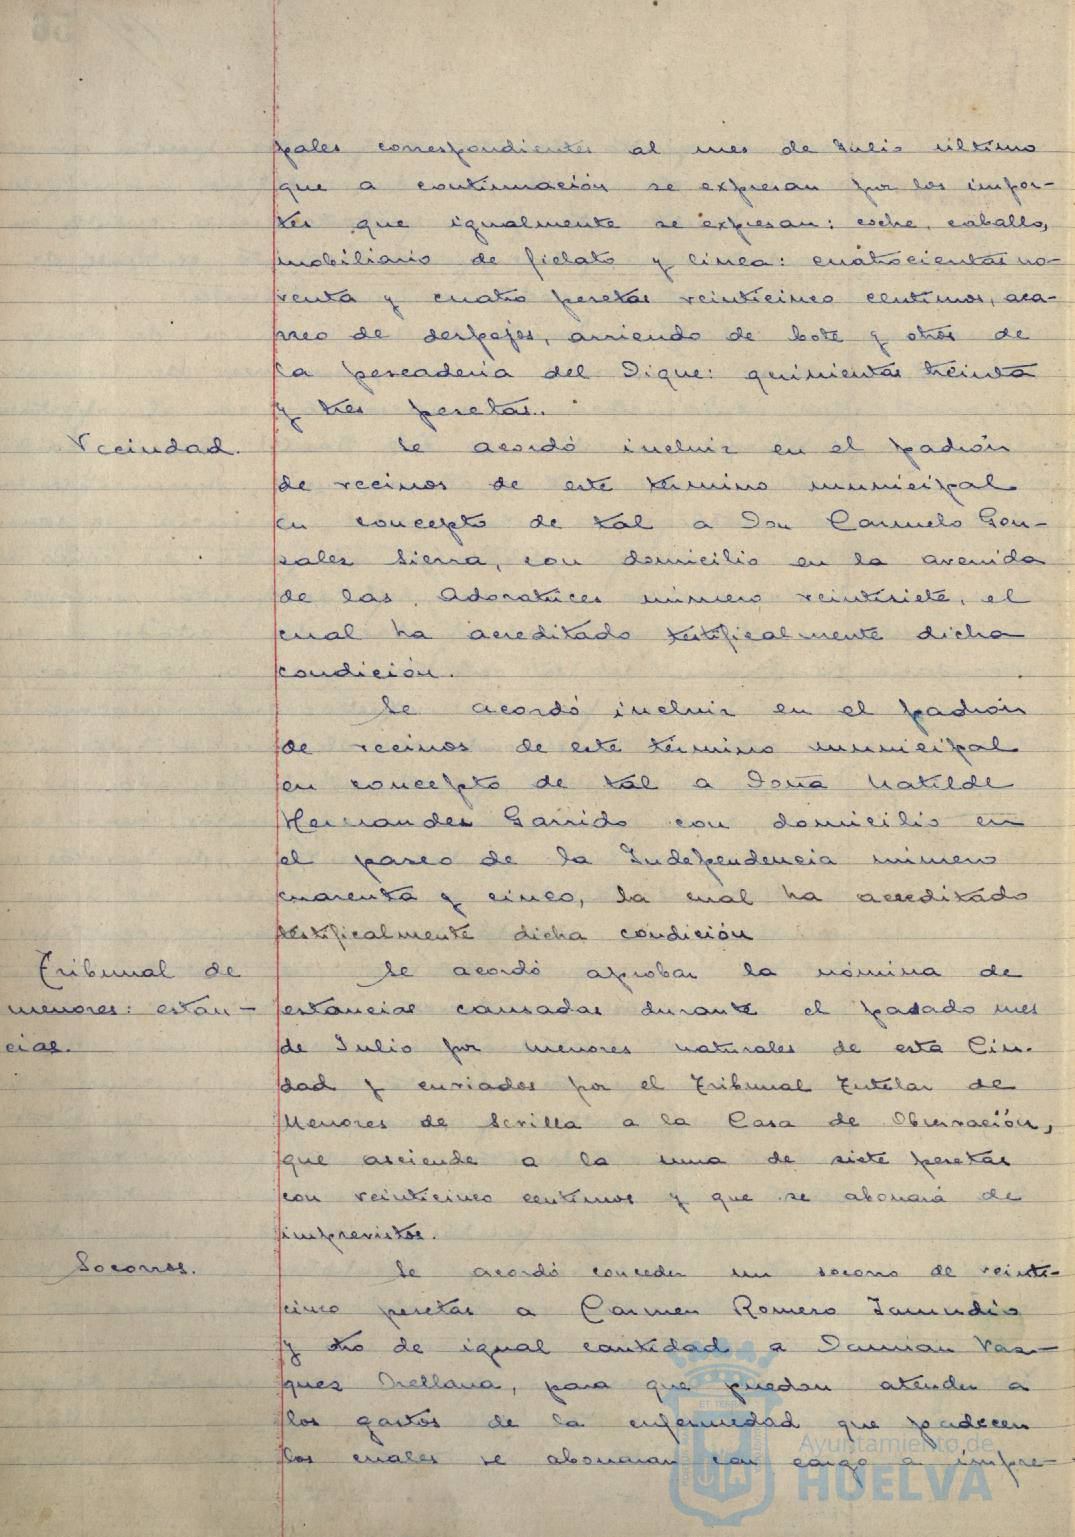 pales correspondientes al mes de Julio último
que a continuación se expresan por los impor-
tes que igualmente se expresan: coche, caballo,
mobiliario de fielato y linea: cuatrocientas no-
venta y cuatro pesetas veinticinco centimos, aca-
rreo de despojos, arriendo de bote y otros de
la pescaderia del Dique: quinientas treinta
y tres pesetas.
Vecindad.
Se acordó incluir en el padrón
de vecinos de este término municipal
en concepto de tal a Don Carmelo Gon-
zalez Sierra, con domicilio en la avenida
de las Adoratrices número veintisiete, el
cual ha acreditado testificalmente dicha
condición.
Se acordó incluir en el padrón
de vecinos de este término municipal
en concepto de tal a Doña Matilde
Hernandez Garrido con domicilio en
el paseo de la Independencia número
cuarenta y cinco, la cual ha acreditado
testificalmente dicha condición
Tribunal de
menores: estan-
cias.
Se acordó aprobar la nómina de
estancias causadas durante el pasado mes
de Julio por menores naturales de esta Ciu-
dad y enviados por el Tribunal Tutelar de
Menores de Sevilla a la Casa de Observación,
que asciende a la suma de siete pesetas
con veinticinco centimos y que se abonará de
imprevistos.
Socorros.
Se acordó conceder un socorro de veinti-
cinco pesetas a Carmen Romero
y otro de igual cantidad a Damian Vaz-
quez Orellana, para que puedan atender a
los gastos de la enfermedad que padecen
los cuales se abonaran con cargo a impre-
Ayuntamiento de
HUELVA